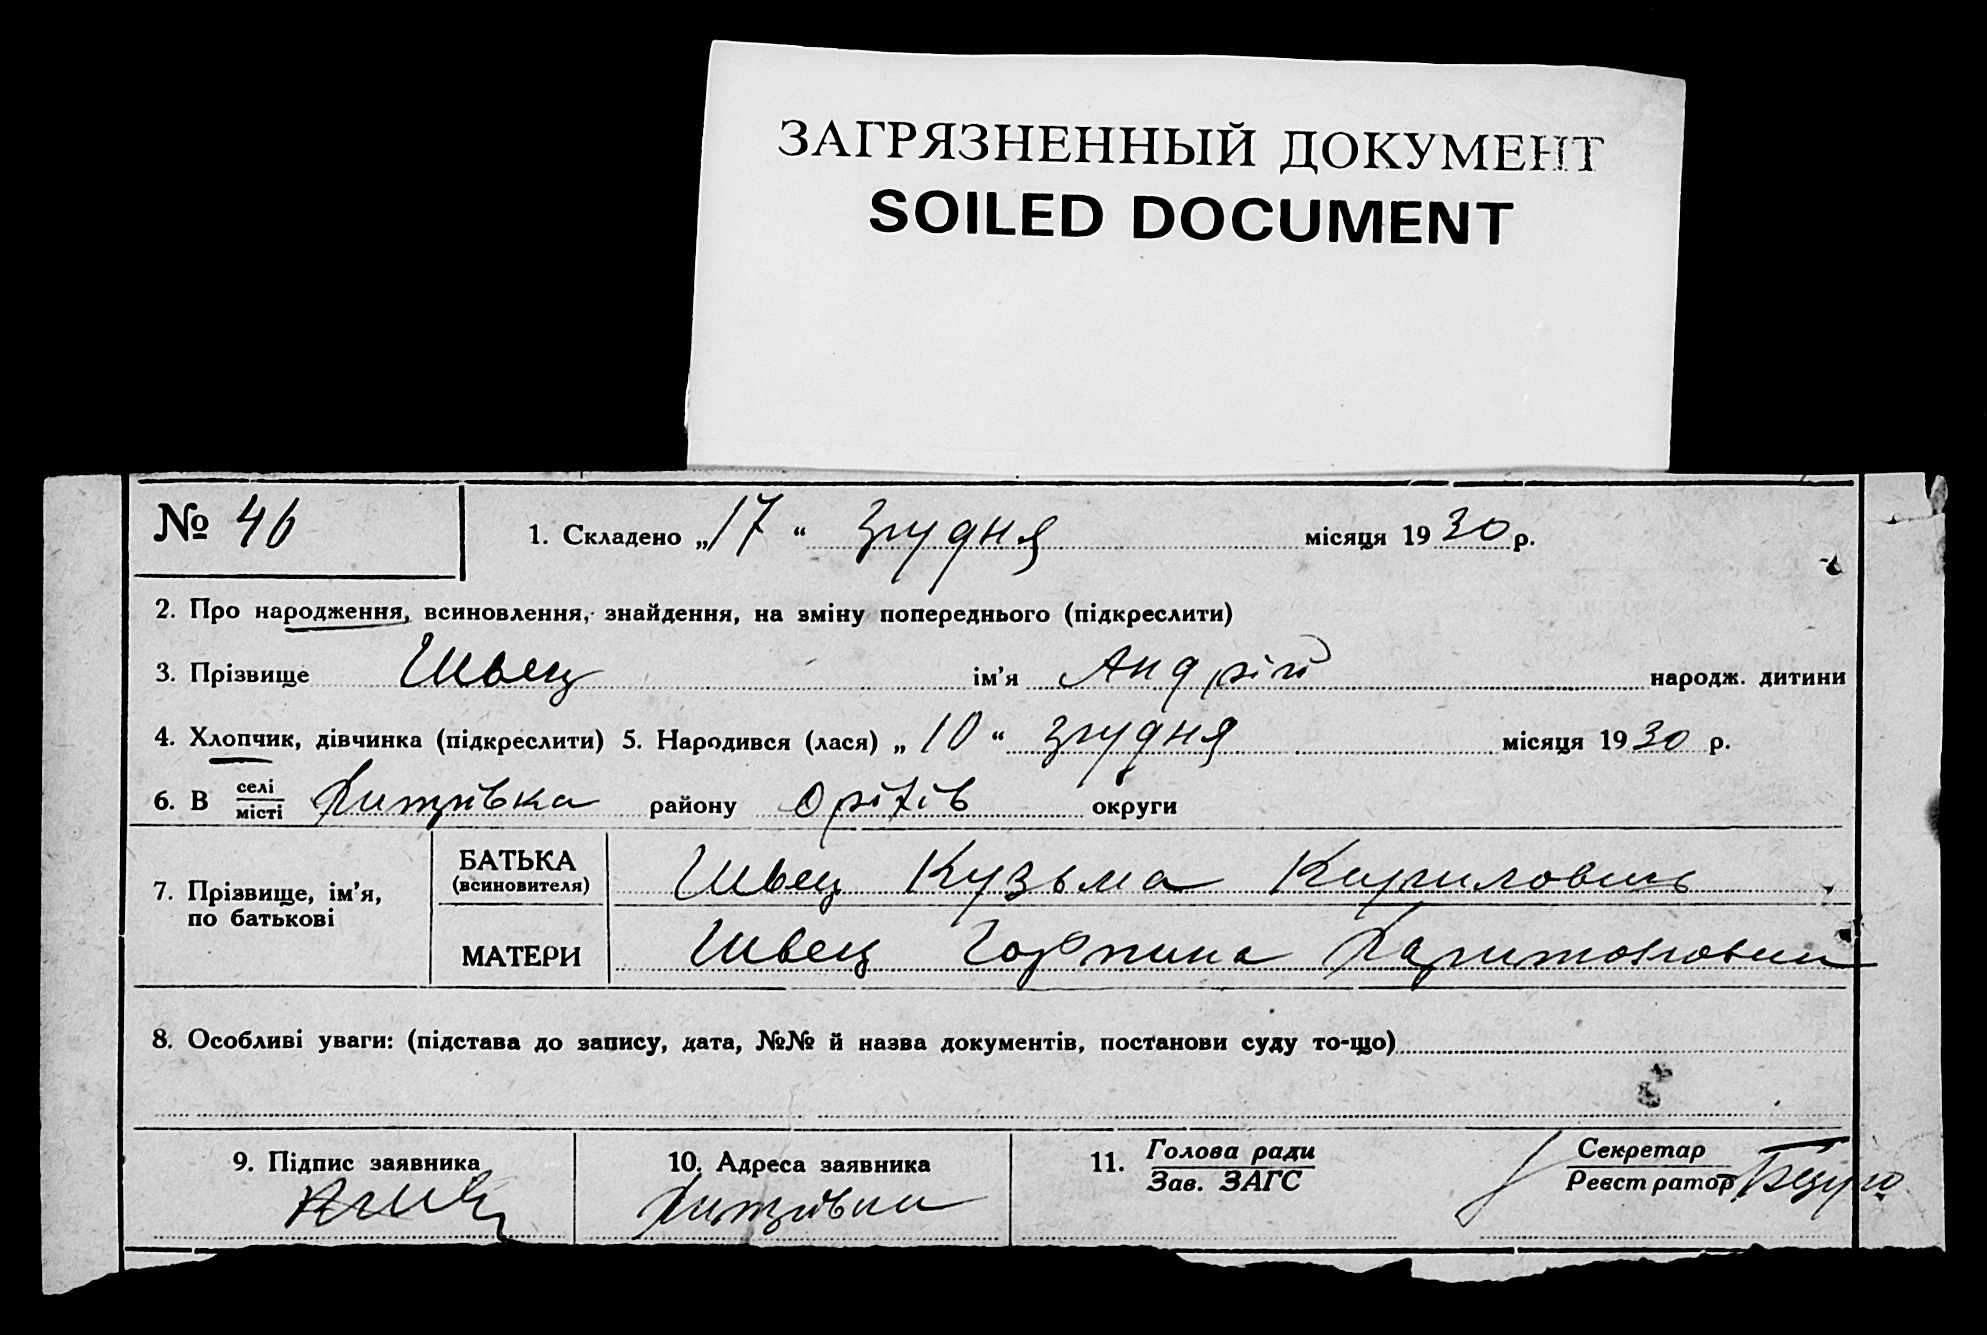 ЗАГРЯЗНЕННЫЙ ДОКУМЕНТ
SOILED DOCUMENT
№ 46
1. Складено „17“ грудня місяця 1930 р.
2. Про народження, всиновлення, знайдення, на зміну попереднього (підкреслити)
3. Прізвище Швец ім’я Андрій народж. дитини
4. Хлопчик, дівчинка (підкреслити) 5. Народився (лася) „10“ грудня місяця 1930 р.
6. В селі/місті району Оріхів округи
7. Прізвище, ім’я, по батькові
БАТЬКА (всиновителя) Швец Кузьма Кирилович
МАТЕРИ Швец Горпина Харитоновна
8. Особливі уваги: (підстава до запису, дата, №№ й назва документів, постанови суду то-що)
9. Підпис заявника
10. Адреса заявника
11. Голова ради
Зав. ЗАГС
Секретар
Реєстратор